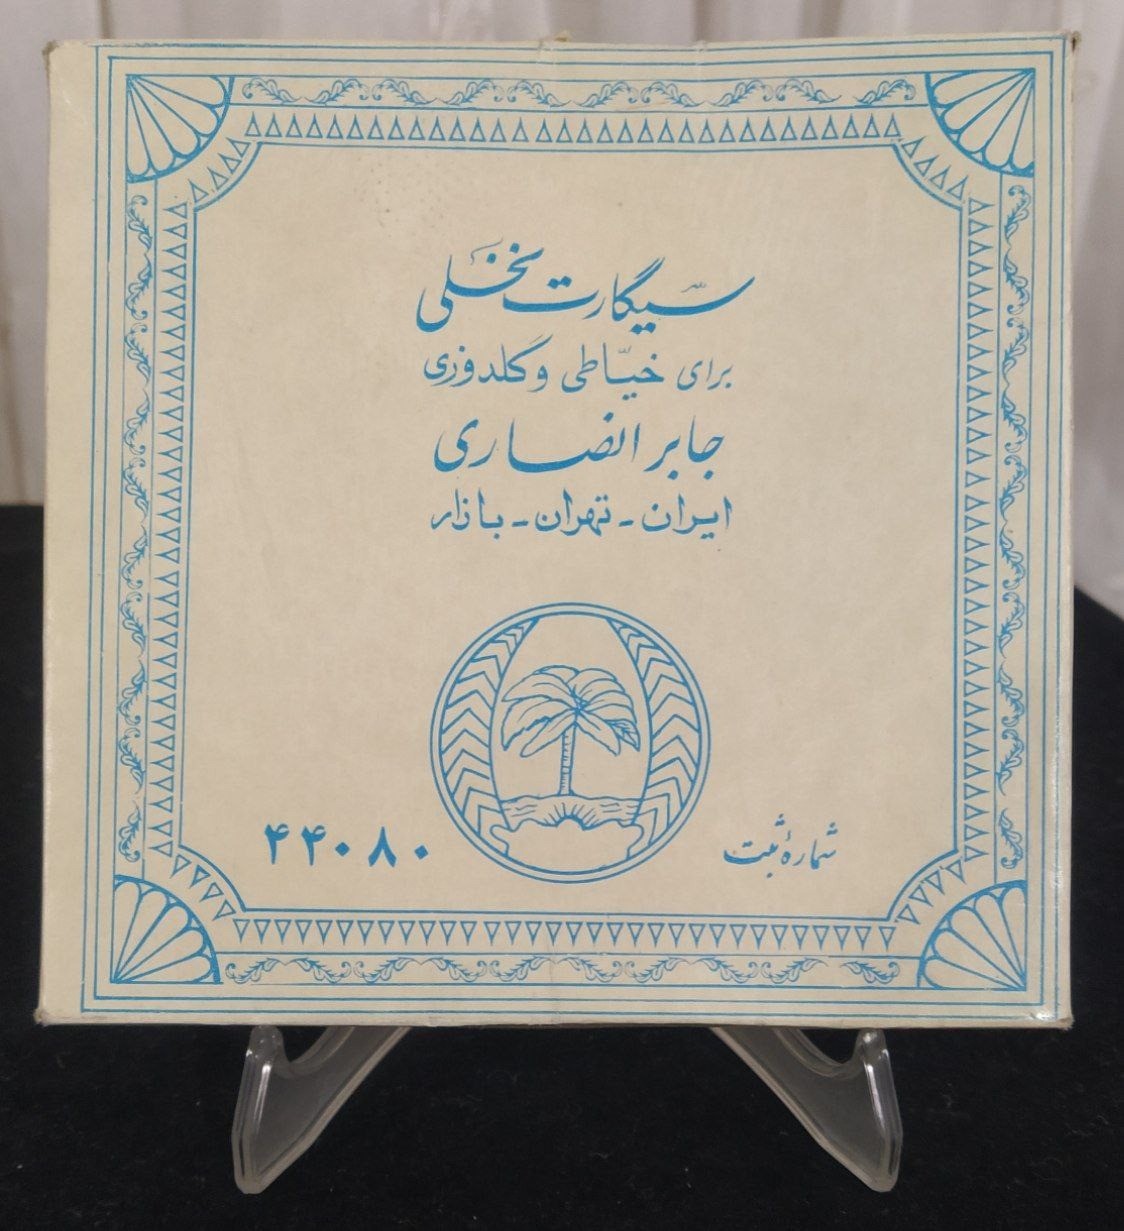 سیگارت نخلی
برای خیّاطی و گلدوزی
جابر انصاری
ایران - تهران - بازار
شمارهٔ ثبت ۴۴۰۸۰